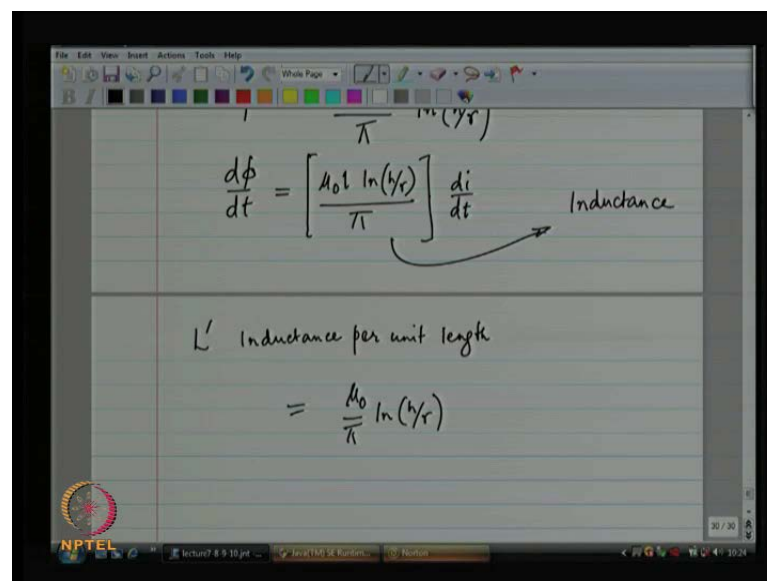 File Edit View Insert Actions Tools Help
Whole Page
B I
π ln(h/r)
dφ/dt = [μ₀ l ln(h/r) / π] di/dt Inductance
L' Inductance per unit length
= μ₀/π ln(h/r)
30 / 30
NPTEL
lecture7-8-9-10.jnt - ... Java(TM) SE Runtim... Norton 10:24